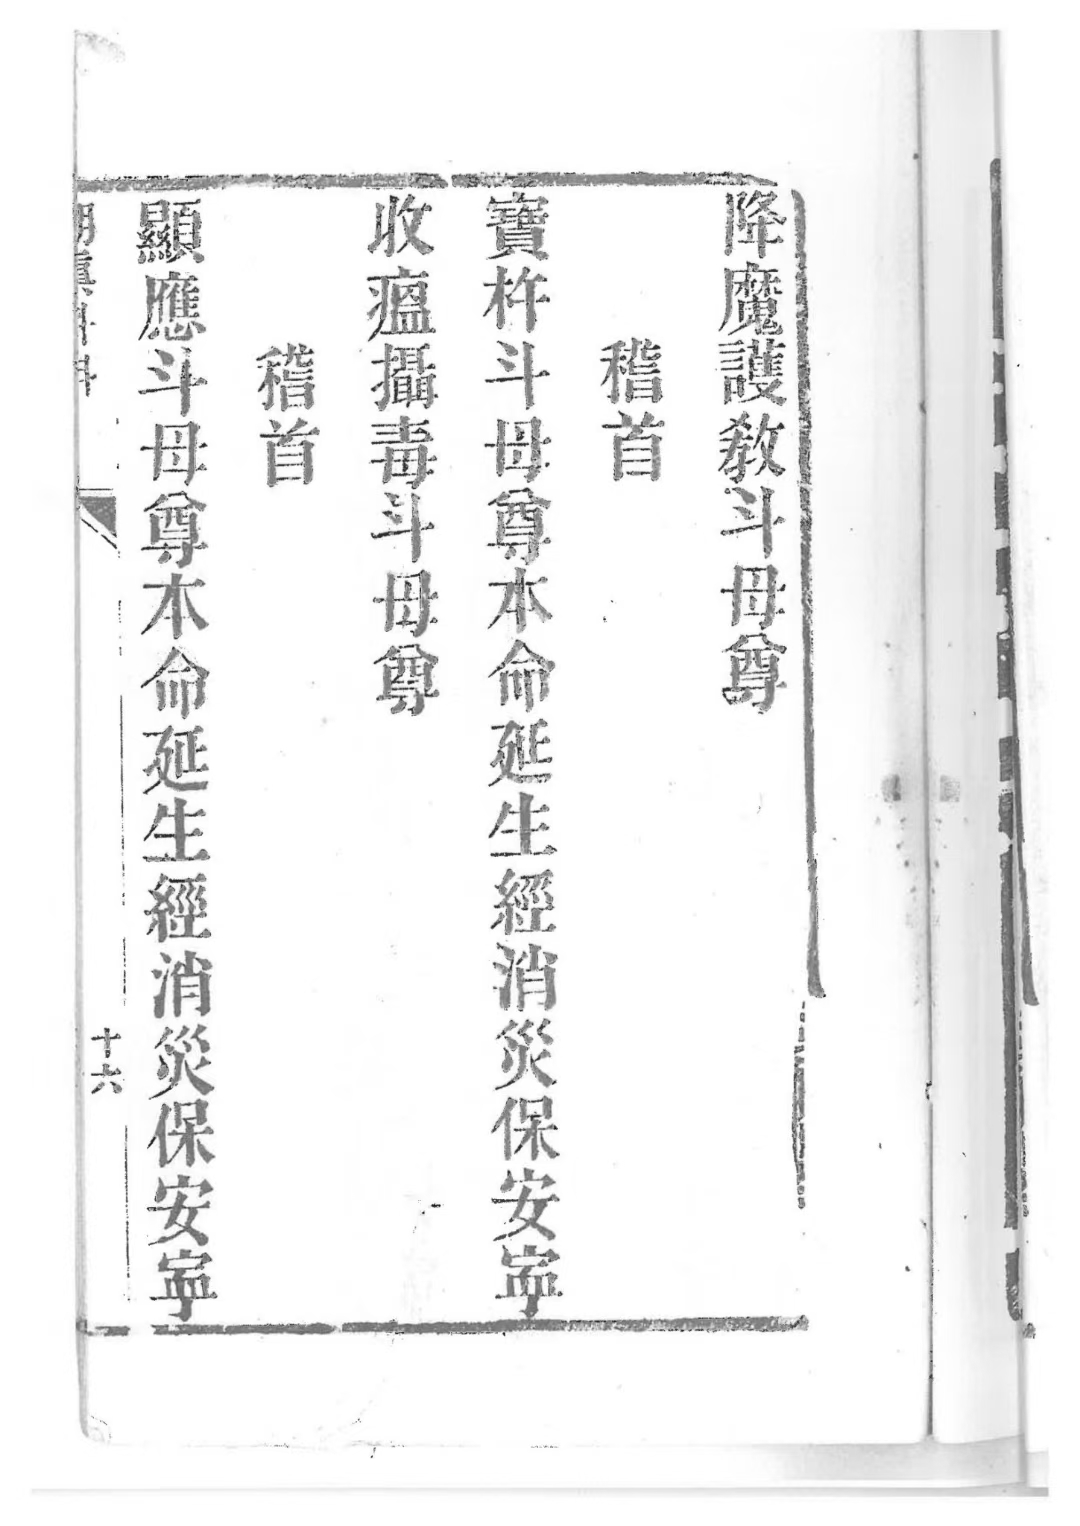 降魔護教斗母尊
稽首
寶杵斗母尊本命延生經消災保安寧
收瘟攝毒斗母尊
稽首
顯應斗母尊本命延生經消災保安寧
十六